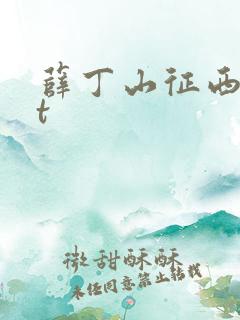 薛丁山征西
t
微甜酥酥
未经同意禁止转载